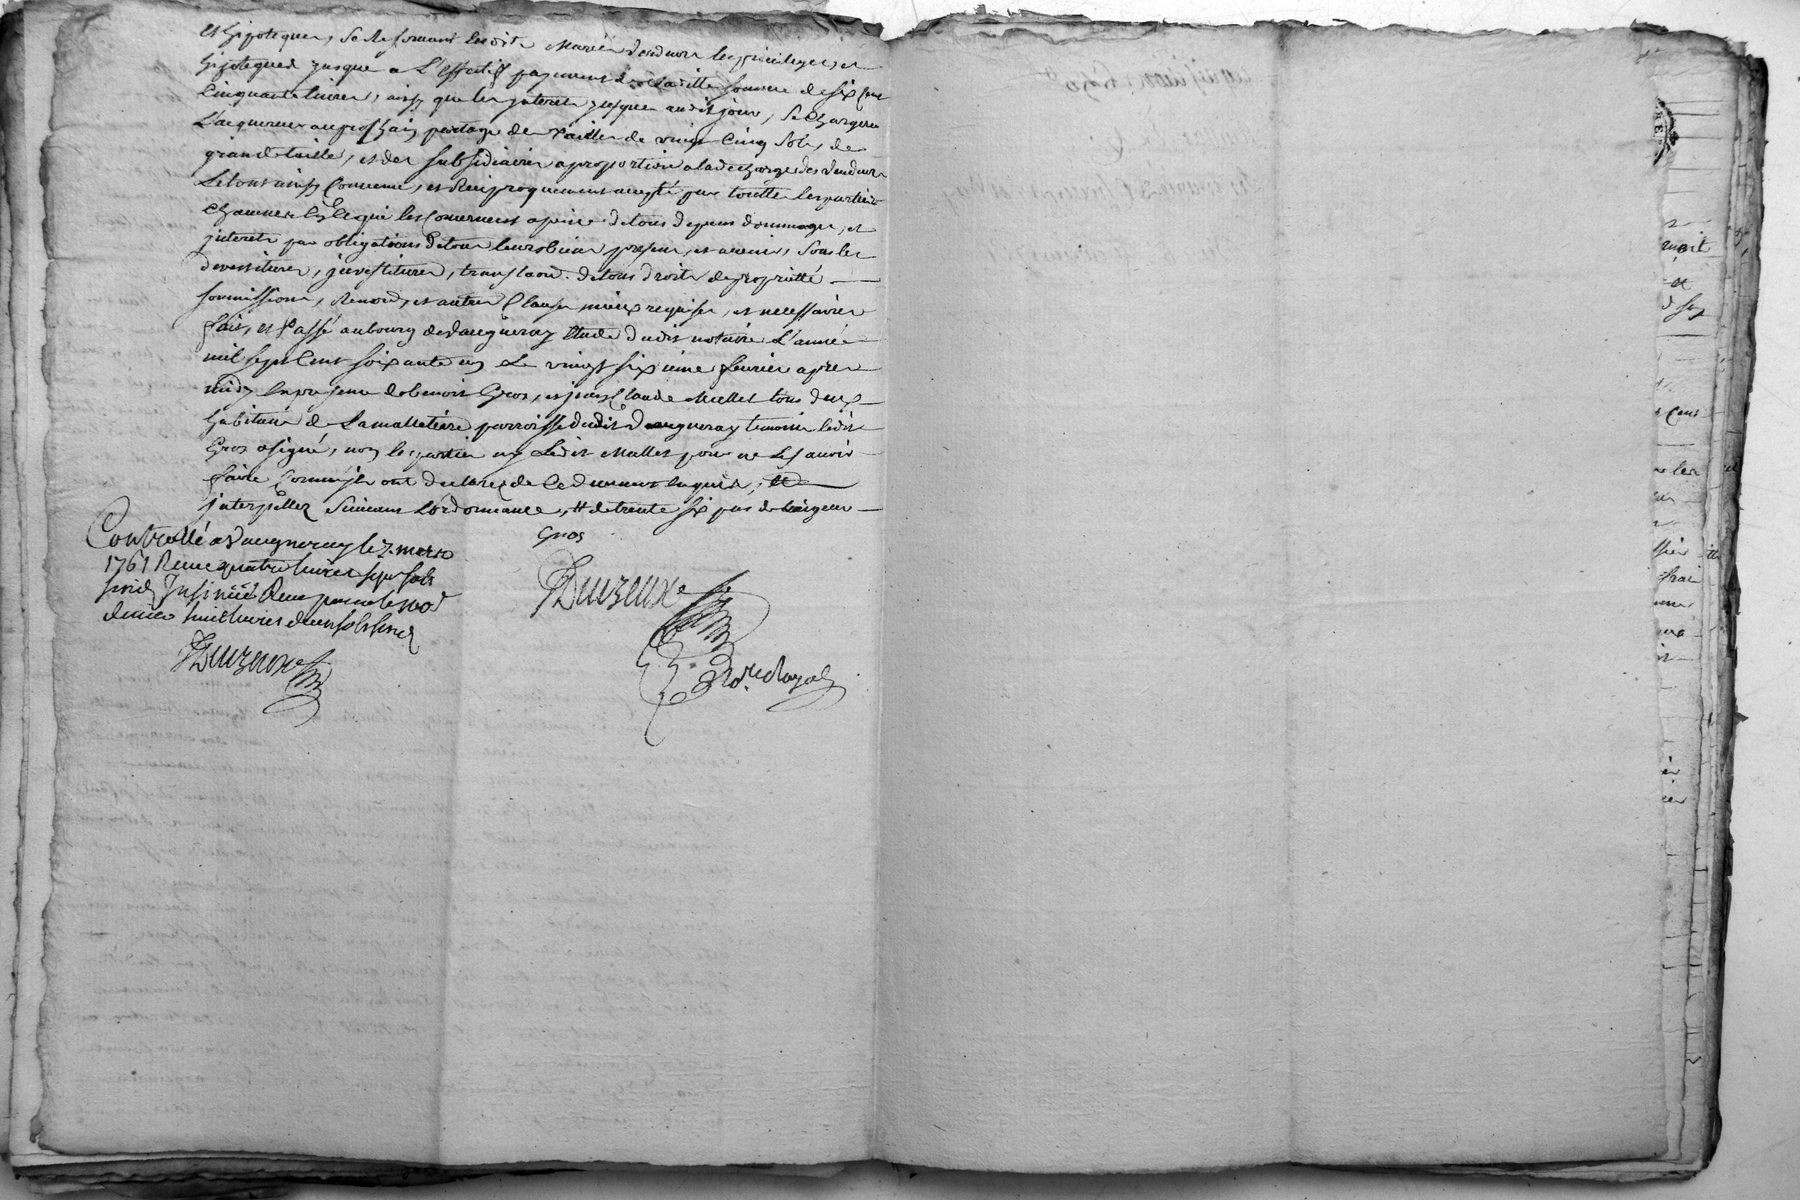 et hipoteques, se reservant lesdits Mariés vendeurs les privileges, et
hipoteques jusque a L'effectif payement de laditte somme de six cent
cinquante livres, ainsy que les jnterets jusques audit jour, se chargera
L'acquereur au prochain partage des tailles de vingt cinq sols, de
grande taille, et des subsidiaires a proportion a la decharge des vendeurs
Le tout ainsy convenu, et Reciproquement accepté par touttes les parties
chacune en ce qui les concernent a peine de tous depens dommages, et
jnterets par obligations de tous leurs biens presens, et avenir, sous les
devestitures, jnvestitures, translaon. de tous droits de proprietté
soumissions, Renonds, et autres Clauses mieux requises, et necessaires
fait, et Passé au bourg de Vaugneray Etude dudit notaire L'année
mil sept Cent soixante un Le vingt sixieme fevrier apres
midy en presence de benoit Gros, et jean Claude Mallet tous deux
habitans de Lamalletiere parroisse dudit Vaugneray temoins ledit
Gros a signé, non les parties ny Ledit Mallet pour ne Le sçavoir
faire comme ils ont declarez de ce dument enquis, et
jnterpellez suivant L'ordonnance, # de trente six pas de largeur
Gros
Controllé a Vaugneray le 7. mars
1761 Reçu quatre livres sept sols
six d. Jnsinué Reçu pour le
denier huit livres deux sols six d.
Duizeux
Duizeux
No.re Royal